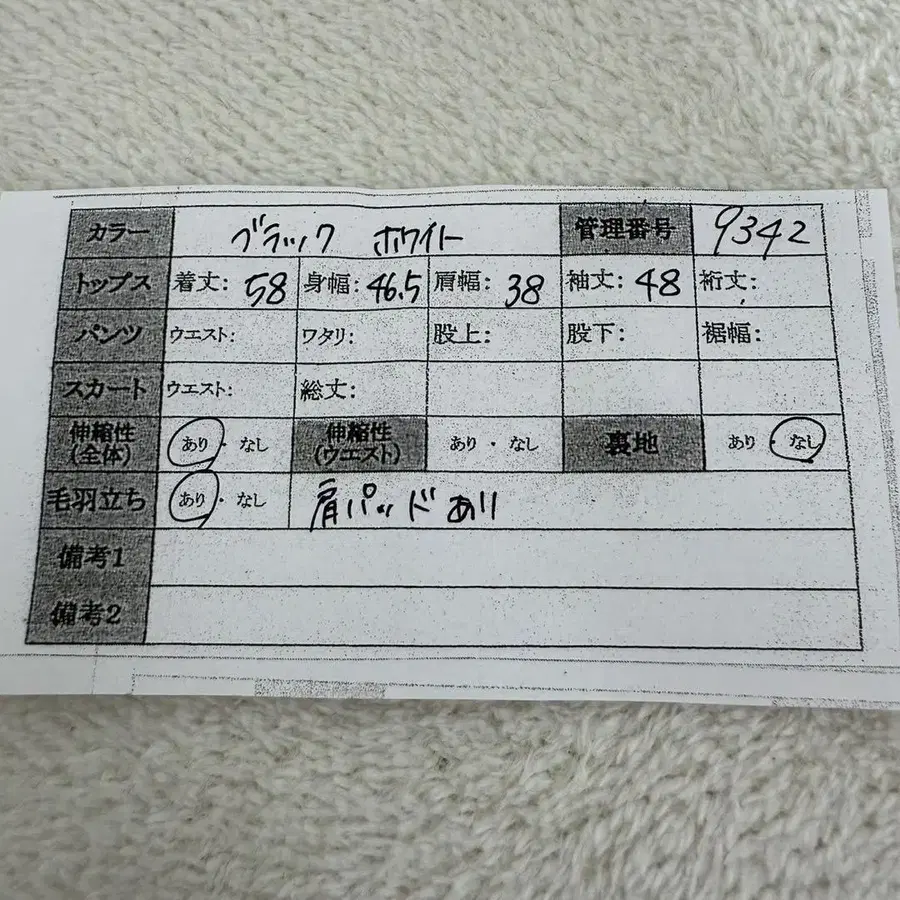 カラー ブラック ホワイト 管理番号 9342
トップス 着丈: 58 身幅: 46.5 肩幅: 38 袖丈: 48 裄丈:
パンツ ウエスト: ワタリ: 股上: 股下: 裾幅:
スカート ウエスト: 総丈:
伸縮性(全体) あり・なし 伸縮性(ウエスト) あり・なし 裏地 あり・なし
毛羽立ち あり・なし 肩パッドあり
備考1
備考2